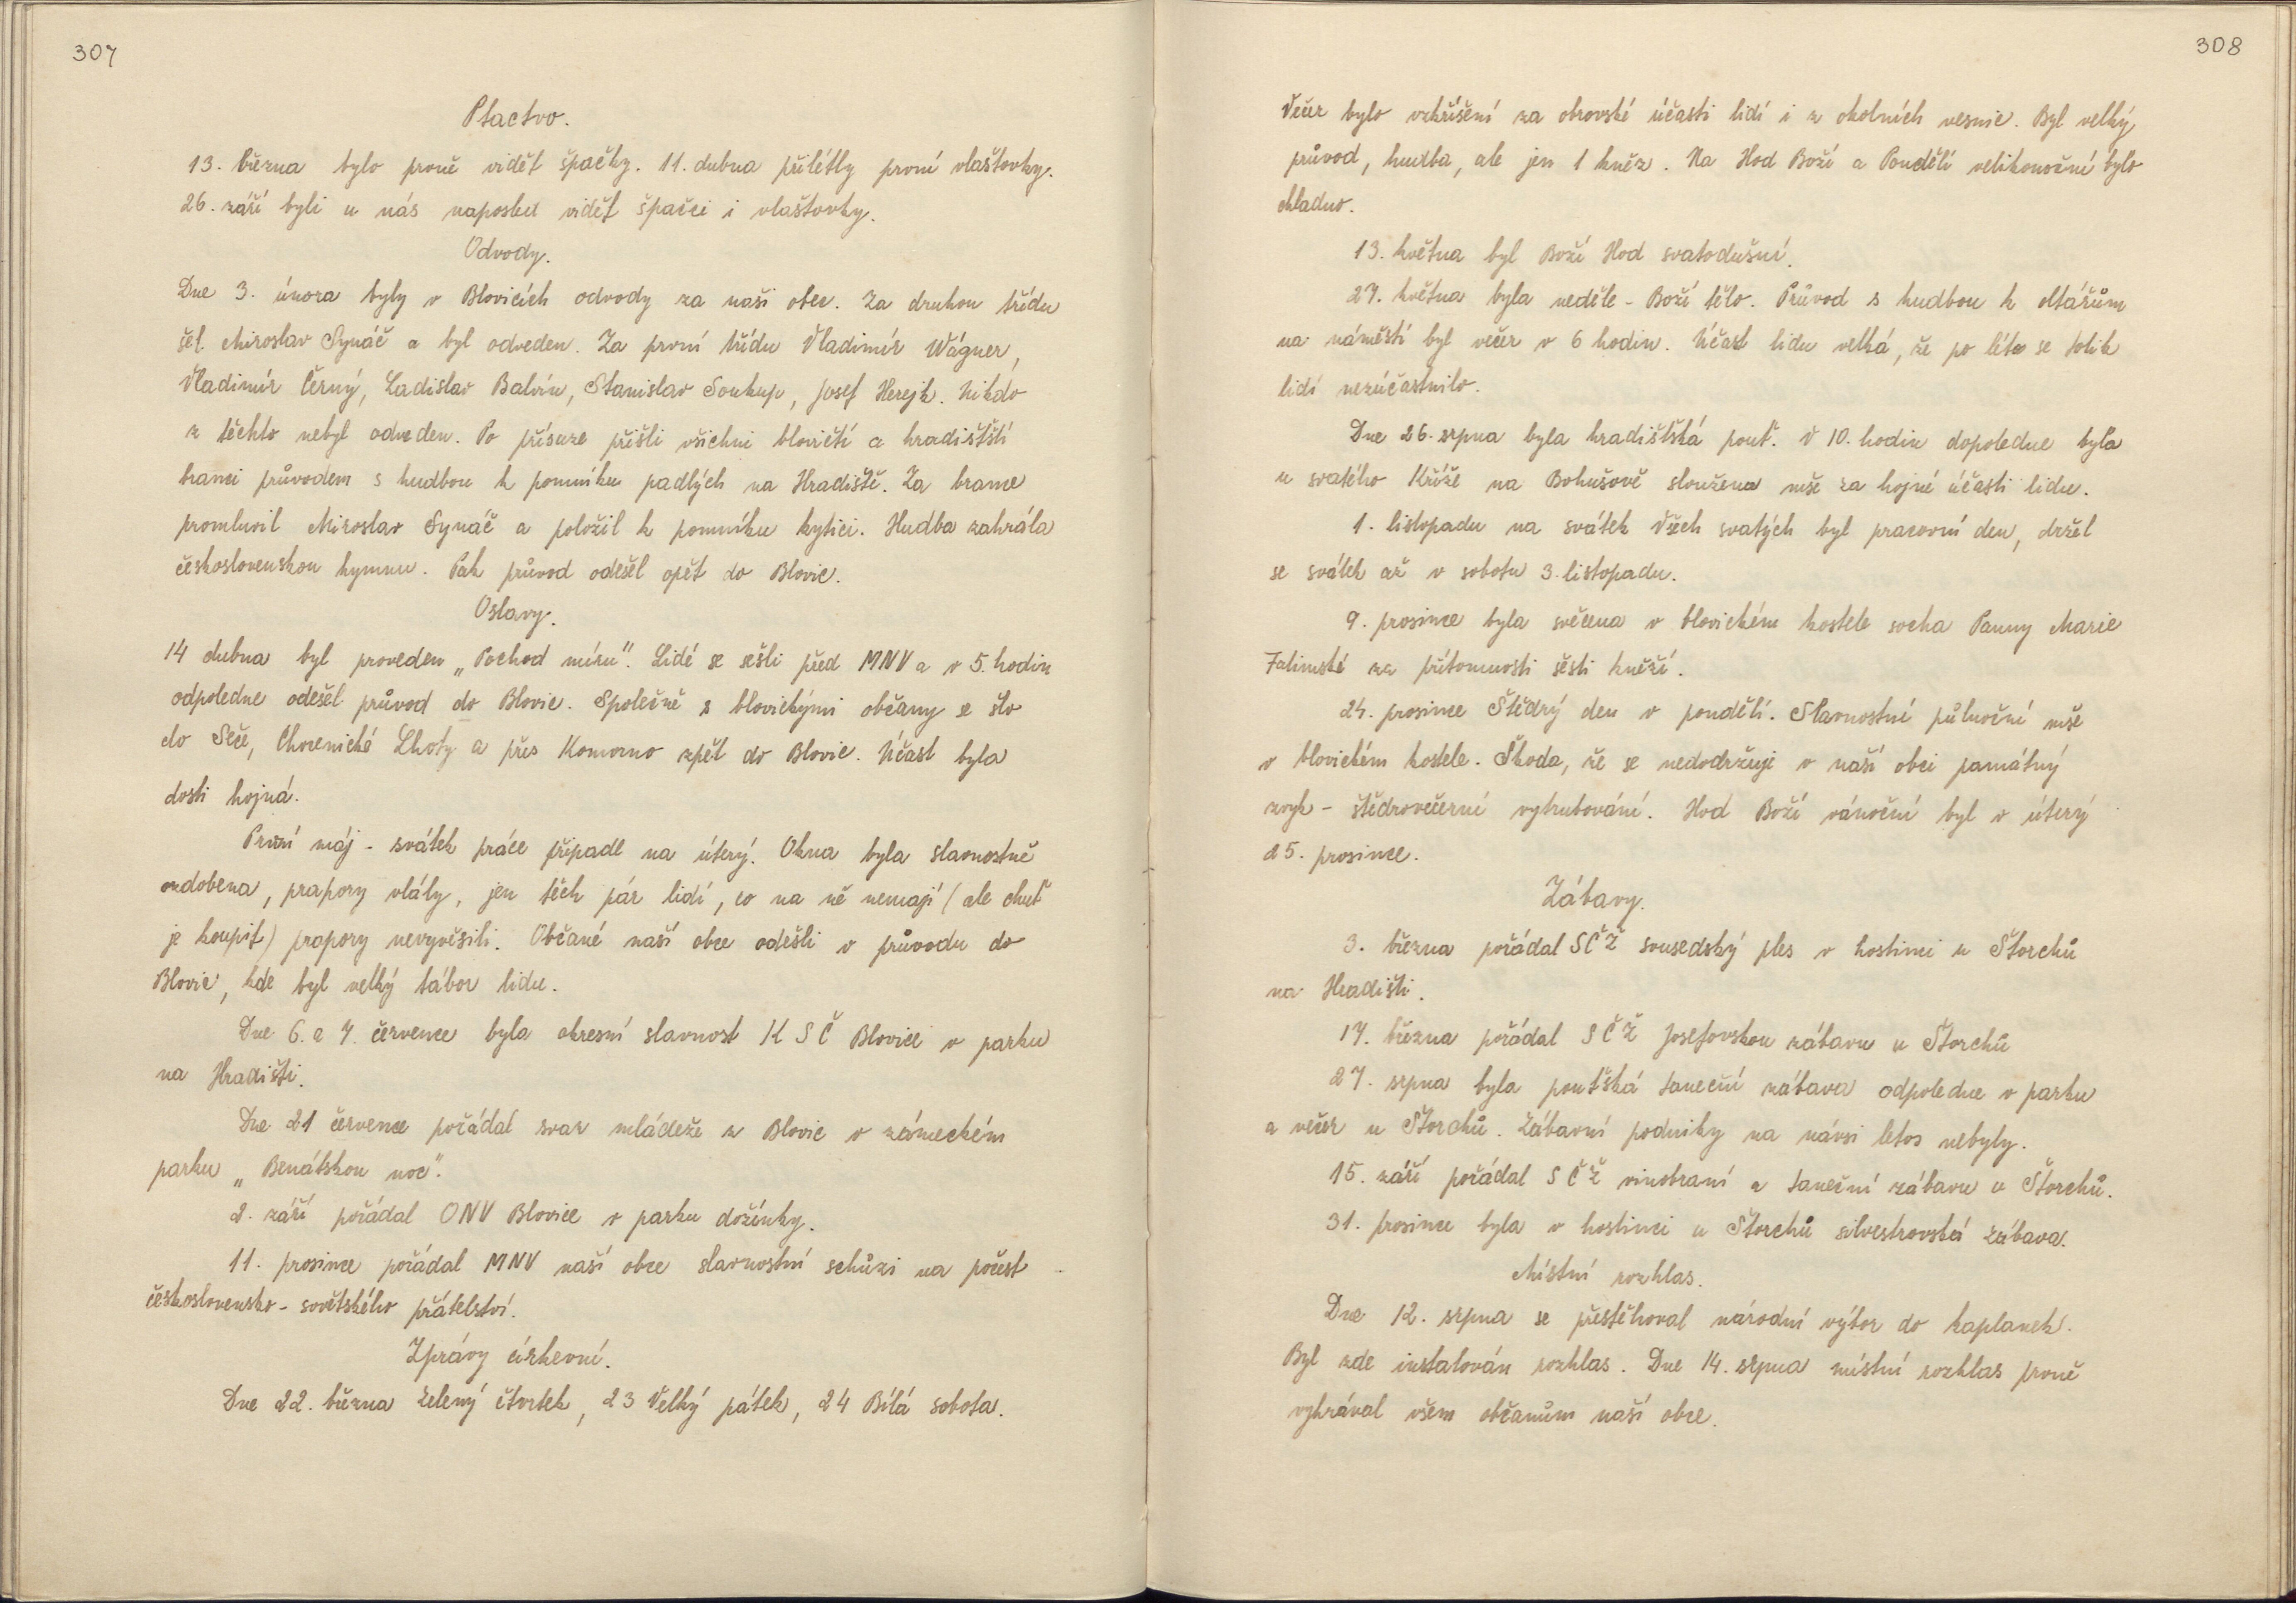 307
Ptactvo.
13. března bylo prvně vidět špačky. 11. dubna přilétly první vlaštovky.
26. září byli u nás naposled vidět špačci i vlaštovky.
Odvody.
Dne 3. února byly v Blovicích odvody za naši obec. Za druhou třídu
šel Miroslav Synáč a byl odveden. Za první třídu Vladimír Wágner,
Vladimír Černý, Ladislav Balvín, Stanislav Soukup, Josef Herejk. Nikdo
z těchto nebyl odveden. Po přísaze přišli všichni blovičtí a hradišťští
branci průvodem s hudbou k pomníku padlých na Hradiště. Za brance
promluvil Miroslav Synáč a položil k pomníku kytici. Hudba zahrála
československou hymnu. Pak průvod odešel opět do Blovic.
Oslavy.
14 dubna byl proveden „Pochod míru". Lidé se sešli před MNV a v 5. hodin
odpoledne odešel průvod do Blovic. Společně s blovickými občany se šlo
do Seče, Chocenické Lhoty a přes Komorno zpět do Blovic. Účast byla
dosti hojná.
První máj - svátek práce připadl na úterý. Okna byla slavnostně
ozdobena, prapory vlály, jen těch pár lidí, co na ně nemají (ale chuť
je koupit) prapory nevyvěsili. Občané naší obce odešli v průvodu do
Blovic, kde byl velký tábor lidu.
Dne 6. a 7. července byla okresní slavnost KSČ Blovice v parku
na Hradišti.
Dne 21 července pořádal svaz mládeže z Blovic v zámeckém
parku „Benátskou noc".
2. září pořádal ONV Blovice v parku dožínky.
11. prosince pořádal MNV naší obce slavnostní schůzi na počest
československo-sovětského přátelství.
Zprávy církevní.
Dne 22. března Zelený čtvrtek, 23 Velký pátek, 24 Bílá sobota.
308
Večer bylo vzkříšení za obrovské účasti lidí i z okolních vesnic. Byl velký
průvod, hudba, ale jen 1 kněz. Na Hod Boží a Pondělí velikonoční bylo
chladno.
13. května byl Boží Hod svatodušní.
27. května byla neděle - Boží tělo. Průvod s hudbou k oltářům
na náměstí byl večer v 6 hodin. Účast lidu velká, že po léta se tolik
lidí nezúčastnilo.
Dne 26. srpna byla hradišťská pouť. V 10. hodin dopoledne byla
u svatého Kříže na Bohušově sloužena mše za hojné účasti lidu.
1. listopadu na svátek Všech svatých byl pracovní den, držel
se svátek až v sobotu 3. listopadu.
9. prosince byla svěcena v blovickém kostele socha Panny Marie
Fatimské za přítomnosti šesti kněží.
24. prosince Štědrý den v pondělí. Slavnostní půlnoční mše
v blovickém kostele. Škoda, že se nedodržuje v naší obci památný
zvyk - štědrovečerní vytrubování. Hod Boží vánoční byl v úterý
25. prosince.
Zábavy.
3. března pořádal SČŽ sousedský ples v hostinci u Štorchů
na Hradišti.
17. března pořádal SČŽ Josefovskou zábavu u Štorchů
27. srpna byla pouťská taneční zábava odpoledne v parku
a večer u Štorchů. Zábavní podniky na návsi letos nebyly.
15. září pořádal SČŽ vinobraní a taneční zábavu u Štorchů.
31. prosince byla v hostinci u Štorchů silvestrovská zábava.
Místní rozhlas.
Dne 12. srpna se přestěhoval národní výbor do kaplanek.
Byl zde instalován rozhlas. Dne 14. srpna místní rozhlas prvně
vyhrával všem občanům naší obce.